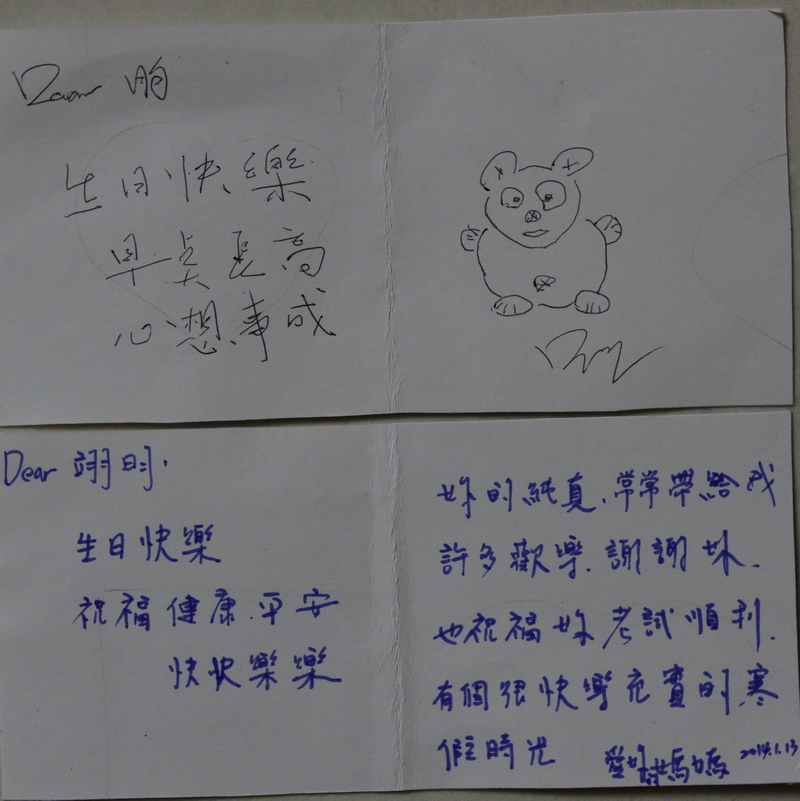 Dear 明
生日快樂
早点長高
心想事成
Dear 翊明.
生日快樂
祝福健康.平安
快快樂樂
妳的純真.常常帶給我
許多歡樂.謝謝妳.
也祝福妳考試順利.
有個很快樂充實的寒
假時光
愛妳的媽媽 2014.1.13